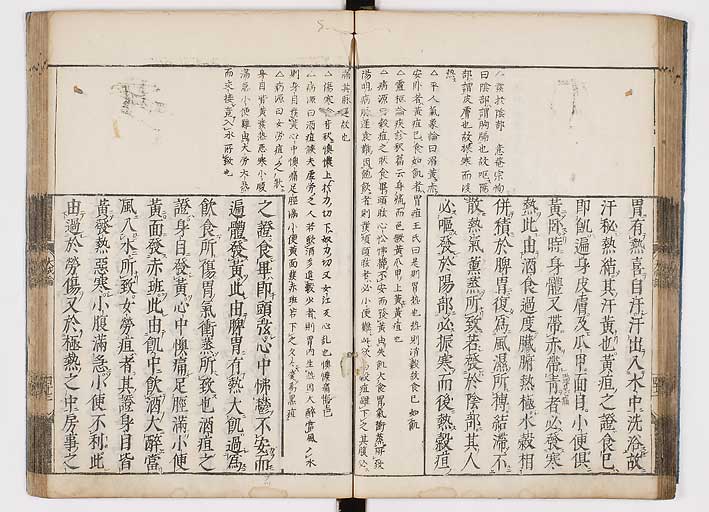 △發於陰部
曰陰部謂胸腸也故嘔陽
部謂皮膚也故振寒而後
熱
△平人氣象論曰溺黃赤
安卧者黃疸已食如飢者胃疸王氏曰是則胃熱也熱則消穀故食已如飢
△靈樞論疾診尺篇云身痛而色微黃爪甲上黃黃疸也
△病源曰穀疸之狀食畢頭眩心忪怫欝不安而發黃由失飢大食胃氣衝蒸所致
陽明病脉遲食難用飽飽者則發煩頭眩者必小便難此欲爲穀疸雖下之其腹必
胃有熱喜自汗汗出入水中洗浴故
汗秘熱結其汗黃也黃疸之證食已
即飢遍身皮膚及瓜甲面目小便俱
黃臥時身體又帶赤帶青者必發寒
熱此由酒食過度臟腑熱極水穀相
併積於脾胃復爲風濕所搏結滯不
散熱氣薰蒸所致若發於陰部其人
必嘔發於陽部必振寒而後熱穀疸
滿其脉遲故也
△傷寒懊憹上於力切下奴刀切又女江又心乱也懊憹痛悔也
△病源曰酒疸候夫虚勞之人若飲酒多進穀少者則胃内生熱因大醉當風入水
則身目發黃心中懊痛足脛滿小便黃面發赤班若下之久久變爲黑疸
△病源曰女勞疸之狀
身目皆黃發熱惡寒小腹
滿急小便難由大勞大熱
而交接竟入水所致也
之證食畢即頭弦心中怫欝不安而
遍體發黃此由脾胃有熱大飢過爲
飲食所傷胃氣衝蒸所致也酒疸之
證身目發黃心中懊痛足脛滿小便
黃面發赤班此由飢中飲酒大醉當
風入水所致女勞疸者其證身目皆
黃發熱惡寒小腹滿急小便不利此
由過於勞傷又於極熱之中房事之